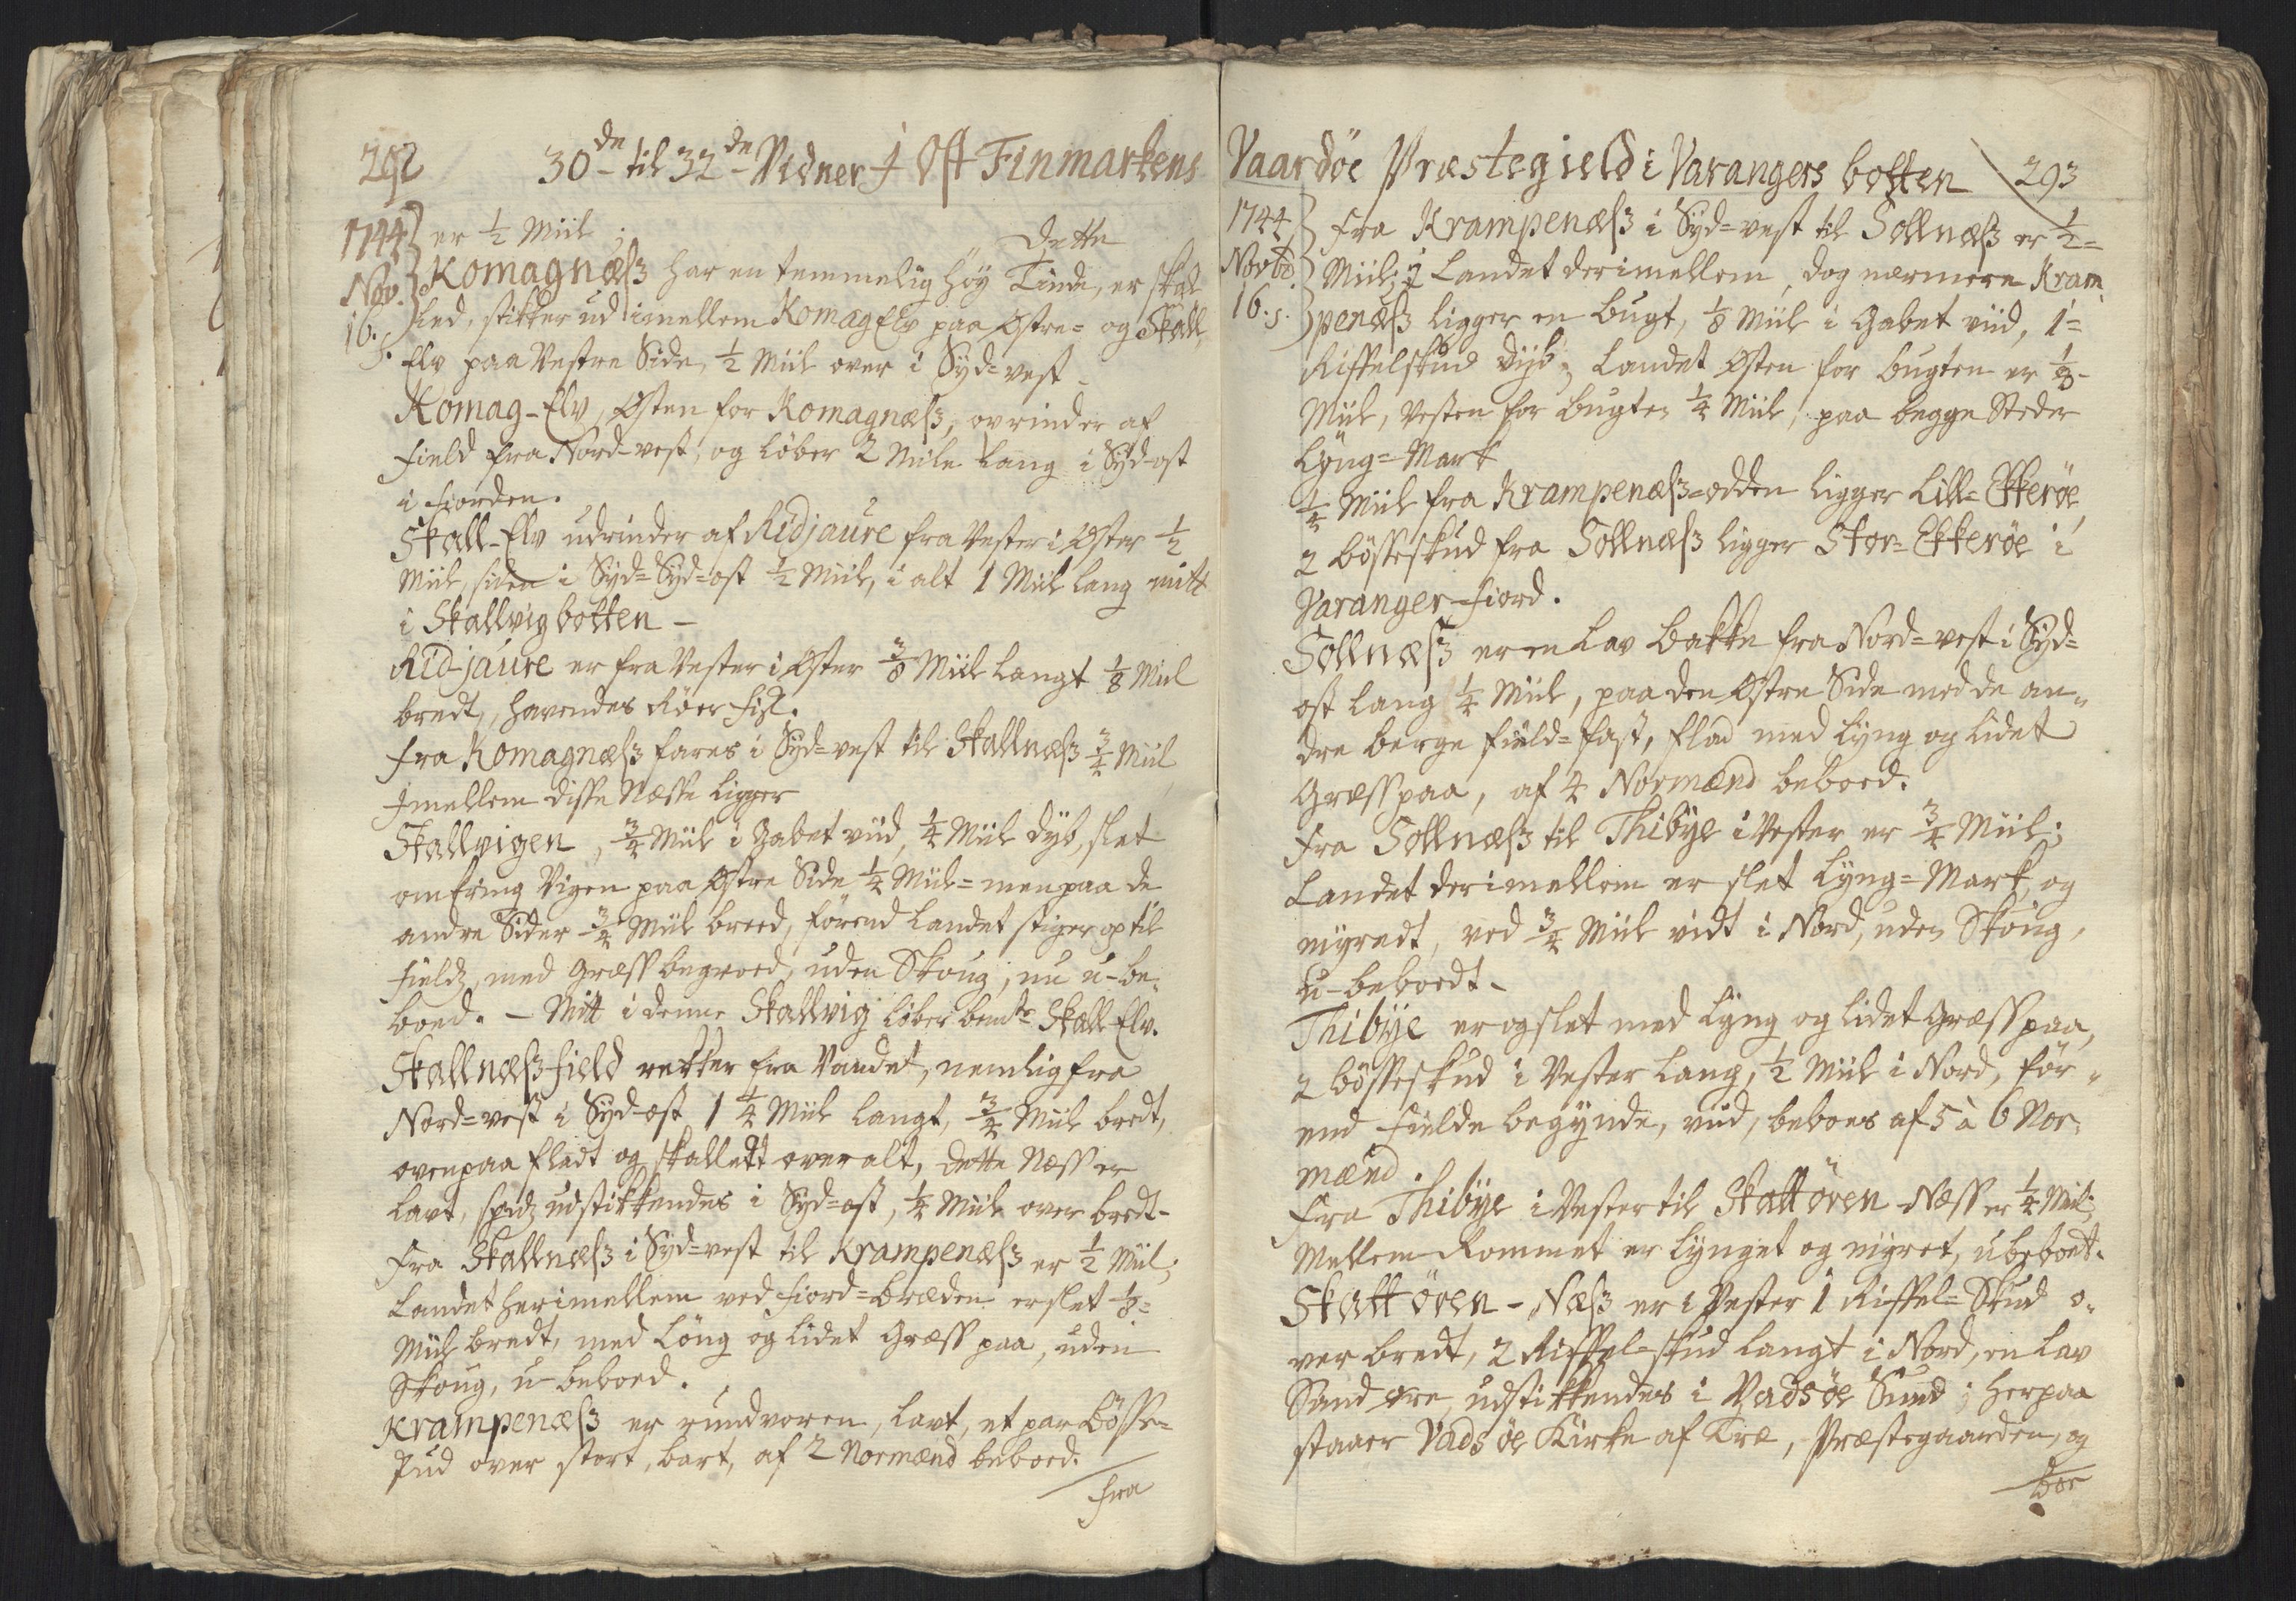 292 30de til 32de Vidner i Ost Finmarkens
1744 er ½ Miil;
Nov. Komagnæss har en temmelig höy Tinde, Dette er skal
16. s. led, stikker ud imellem KomagElv paa Östre- og Skall
Elv paa Vestre Side, ½ Miil over i Syd-vest
Komag-Elv, Östen for Komagnæss, oprinder af
Field fra Nord-vest, og löber 2 Mile lang i Syd-ost
i Fiorden.
Skall-Elv udrinder af Ridjaure fra Vester i Öster ½
Miil, siden i Syd-Syd-ost ½ Miil, i alt 1 Miil lang mitt
i Skallvigbotten -
Rid-jaure er fra Vester i Öster 3/8 Miil langt ⅛ Miil
bredt, havendes Röer Fisk.
Fra Komagnæss fares i Syd-vest til Skallnæss ¾ Miil
Imellem disse Næsse ligger
Skallvigen, ¾ Miil i Gabet viid, ¼ Miil dyb, slet
omkring Vigen paa Östre Side ¼ Miil- men paa de
andre Sider ¾ Miil breed, förend Landet stiger op til
Fields, med Græss begroed, uden Skoug, nu u-be-
boed. - Mitt i denne Skallvig löber bemte Skall Elv.
Skallnæss-field rekker fra Vandet, nemlig fra
Nord-vest i Syd-ost 1 ¼ Miil langt, ¾ Miil bredt,
ovenpaa fladt og skallett over alt, dette Næss er
lavt, spids udstikkendes i Syd-ost, ¼ Miil over bredt-
Fra Skallnæss i Syd-vest til Krampenæss er ½ Miil;
Landet herimellem ved Fiord-bræden er slet ⅛-
Miil bredt, med Löng og lidet Græss paa, uden
Skoug, u-beboed.
Krampenæss er rundvoren, lavt, et par Bösse-
skud over stort, bart, af 2 Normænd beboed.
Fra
Vaardöe Præstegield i Varangers botten 293
1744 Fra Krampenæss i Syd-vest til Sollnæss er ½-
Novbr. Miil; i Landet derimellem, dog nærmere Kram-
16. s. penæss ligger en Bugt, ⅛ Miil i Gabet viid, 1-
Riffelskud dyb; Landet Östen for Bugten er ⅛-
Miil, Vesten for Bugten ¼ Miil, paa begge Steder
Lyng-Mark
¼ Miil fra Krampenæss-odden ligger Lill-Ekkeröe,
2 Bösseskud fra Sollnæss ligger Stor-Ekkeröe i
Varanger-Fiord.
Sollnæss er en lav Bakke fra Nord-vest i Syd-
ost lang ¼ Miil, paa den Östre Side med de an-
dre berge Field-fast, flad med Lyng og lidet
Græss paa, af 4 Normænd beboed.
Fra Sollnæss til Thibye i Vester er ¾ Miil;
Landet derimellem er slet Lyng-Mark og
myredt, ved ¾ Miil vidt i Nord, uden Skoug,
u-beboedt-
Thibye er og slet med Lyng og lidet Græss paa,
2 Bösseskud i Vester lang, ½ Miil i Nord, för-
end Fielde begynde, viid, beboes af 5 à 6 Nor-
mænd.
Fra Thibye i Vester til Skattören-Næss er ¼ Miil;
Mellem Rommet er Lynget og myret, ubeboet.
Skattören-Næss er i Vester 1 Riffel-Skud o-
ver bredt, 2 Riffel-skud langt i Nord, en lav
Sand öre, udstikkendes i Vadsöe Sund; herpaa
staaer Vadsöe Kirke af Træ, Præstegaarden, og
boe